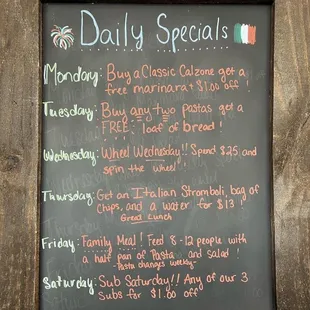 Daily Specials
Monday: Buy a Classic Calzone get a
free marinara + $1.00 off!
Tuesday: Buy any two pastas get a
FREE loaf of bread!
Wednesday: Wheel Wednesday!! Spend $25 and
spin the wheel!
Thursday: Get an Italian Stromboli, bag of
chips, and a water for $13!
Great Lunch
Friday: Family Meal! Feed 8-12 people with
a half pan of Pasta and salad!
-Pasta changes weekly-
Saturday: Sub Saturday!! Any of our 3
Subs for $1.00 off